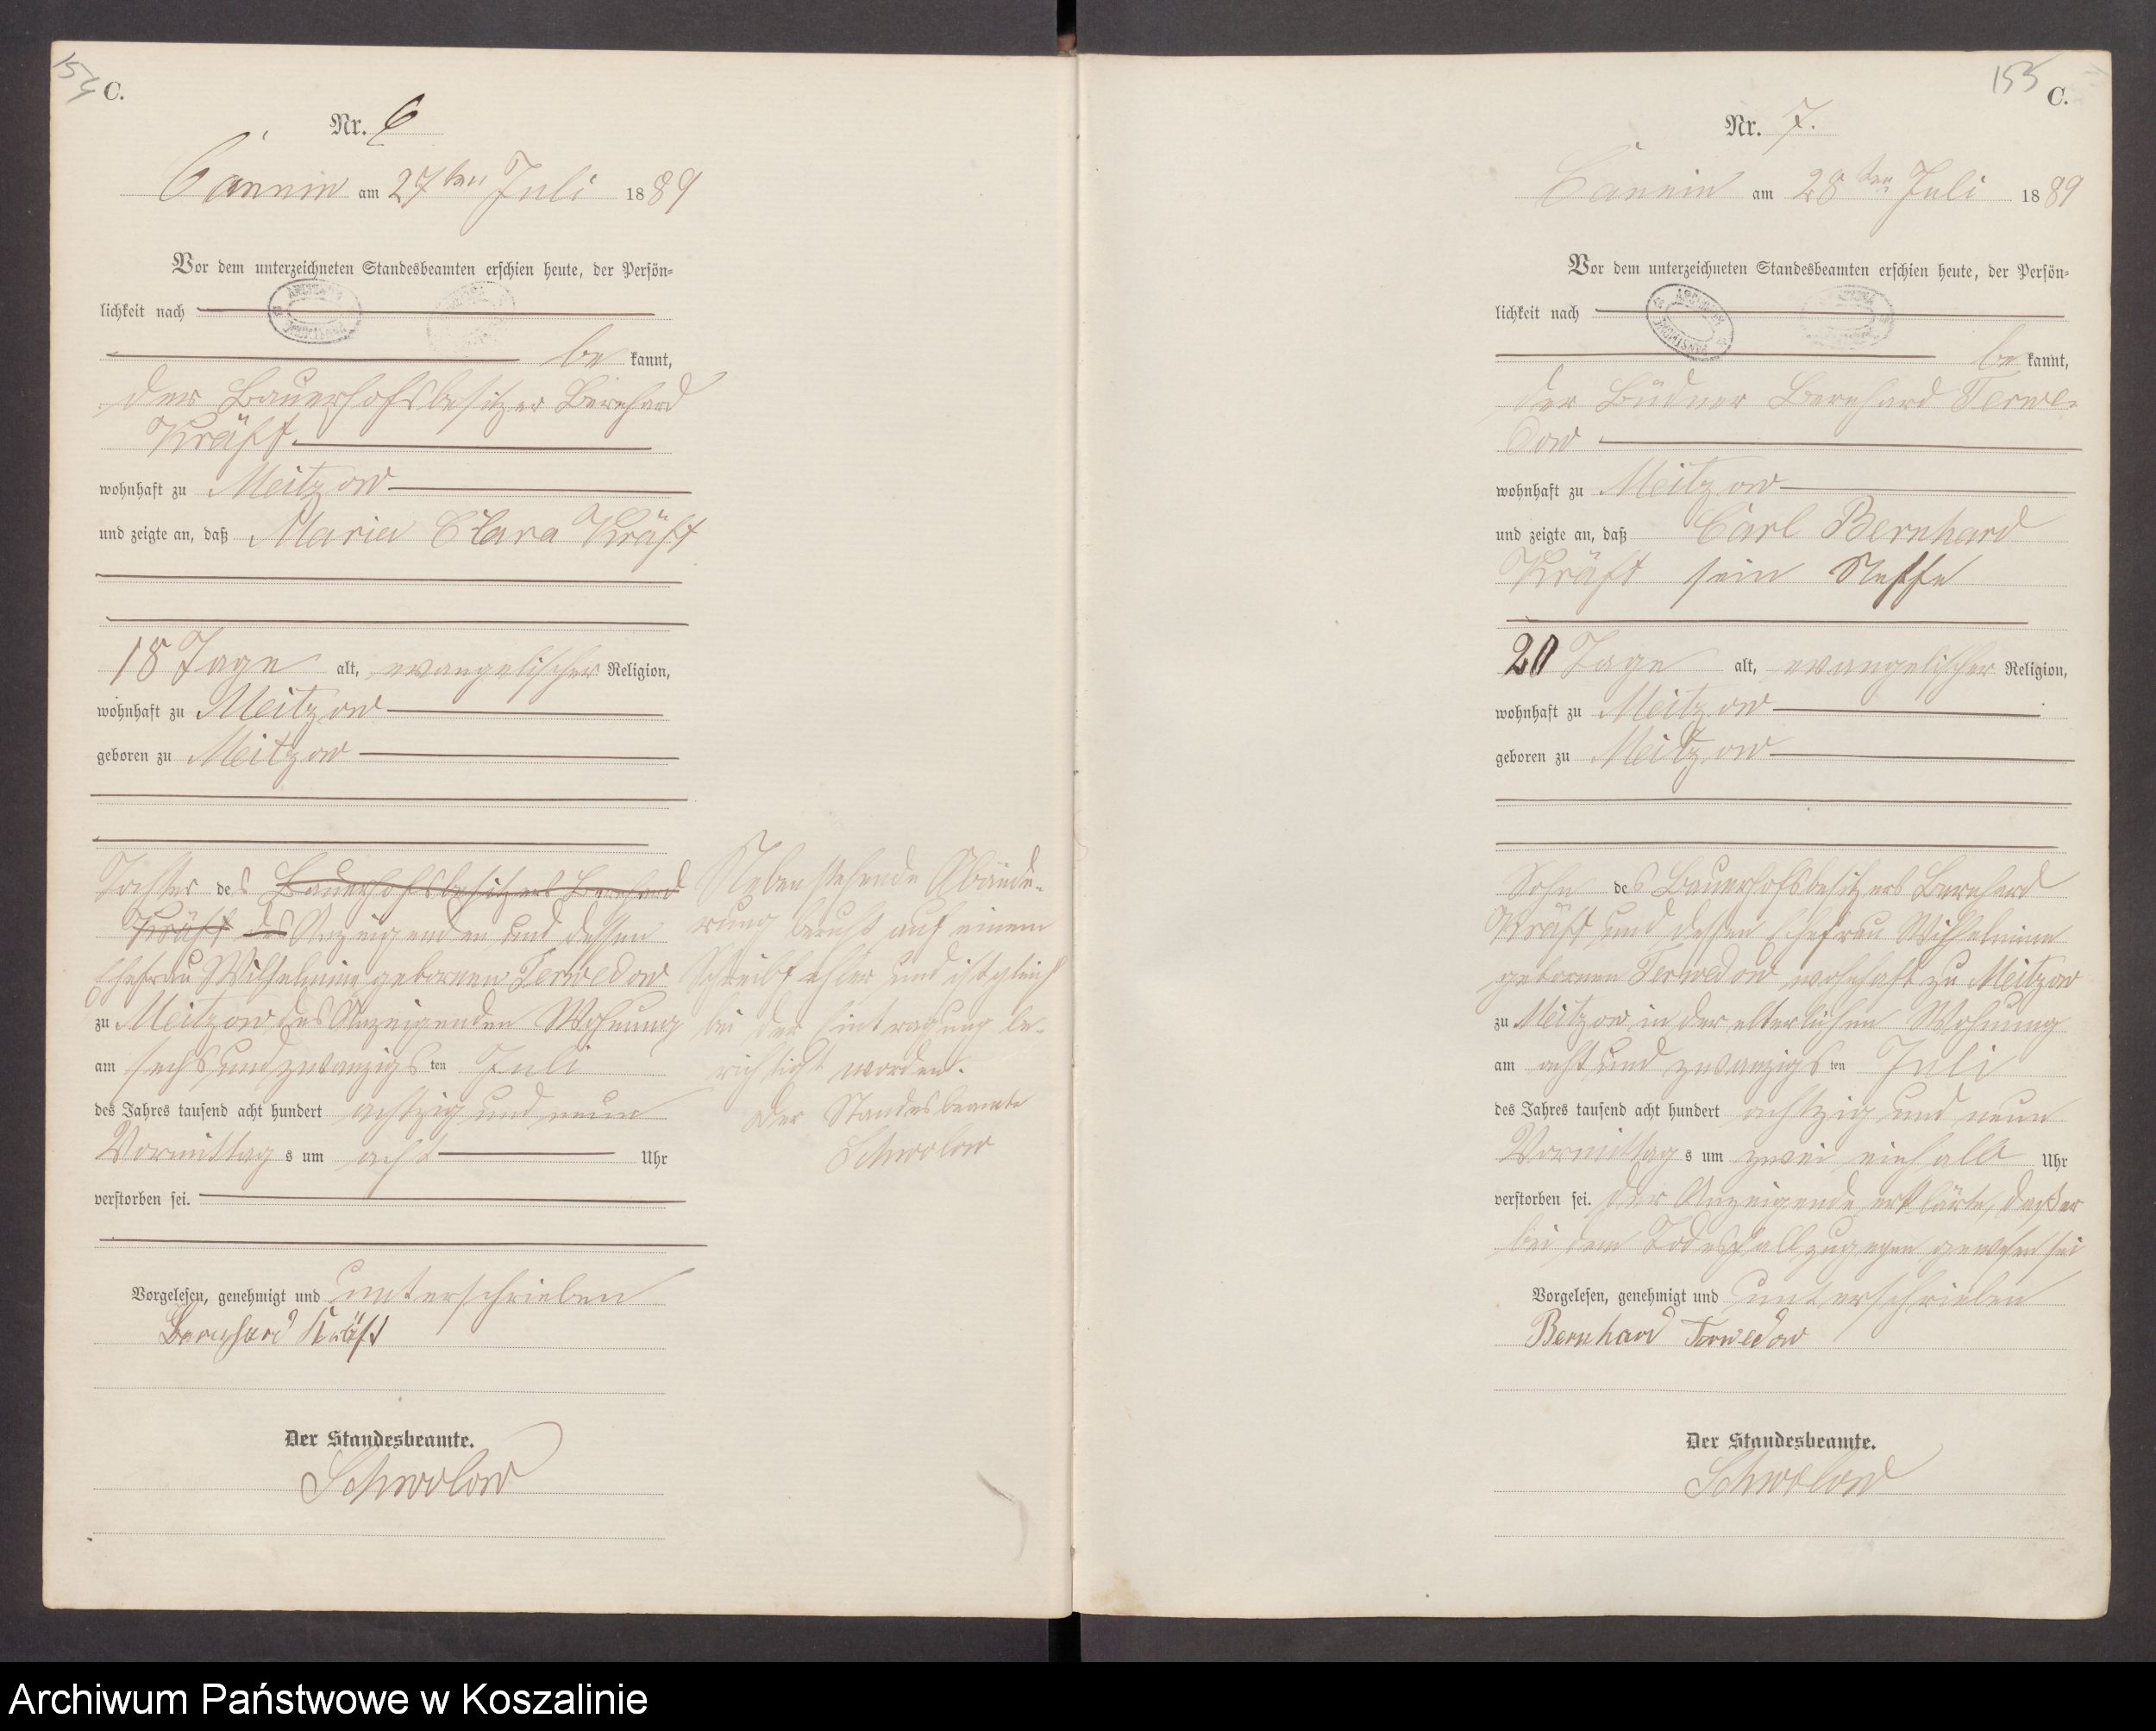 154
C.
Nr. 6
Cannin am 27ten Juli 1889
Vor dem unterzeichneten Standesbeamten erschien heute, der Persön-
lichkeit nach
be kannt,
der Bauerhofsbesitzer Bernhard
Kräft
wohnhaft zu Meitzow
und zeigte an, daß Maria Clara Kräft
18 Tage alt, evangelischer Religion,
wohnhaft zu Meitzow
geboren zu Meitzow
Tochter des Bauerhofsbesitzers Bernhard
Kräft des Anzeigenden und dessen
Ehefrau Wilhelmine gebornen Terwedow
zu Meitzow des Anzeigenden Wohnung
am sechs und zwanzigsten Juli
des Jahres tausend acht hundert achtzig und neun
Vormittags um acht Uhr
verstorben sei.
Vorgelesen, genehmigt und unterschrieben
Bernhard Kräft
Der Standesbeamte.
Schwolow
Nebenstehende Abände-
rung beruht auf einem
Schreibfehler und ist gleich
bei der Eintragung be-
richtigt worden.
Der Standesbeamte
Schwolow
155
C.
Nr. 7.
Cannin am 28ten Juli 1889
Vor dem unterzeichneten Standesbeamten erschien heute, der Persön-
lichkeit nach
be kannt,
der Büdner Bernhard Terwe-
dow
wohnhaft zu Meitzow
und zeigte an, daß Carl Bernhard
Kräft sein Neffe
20 Tage alt, evangelischer Religion,
wohnhaft zu Meitzow
geboren zu Meitzow
Sohn des Bauerhofsbesitzers Bernhard
Kräft und dessen Ehefrau Wilhelmine
gebornen Terwedow wohnhaft zu Meitzow
zu Meitzow in der elterlichen Wohnung
am acht und zwanzigsten Juli
des Jahres tausend acht hundert achtzig und neun
Vormittags um zwei einhalb Uhr
verstorben sei. Der Anzeigende erklärte, daß er
bei dem Todesfall zugegen gewesen sei
Vorgelesen, genehmigt und unterschrieben
Bernhard Terwedow
Der Standesbeamte.
Schwolow
Archiwum Państwowe w Koszalinie